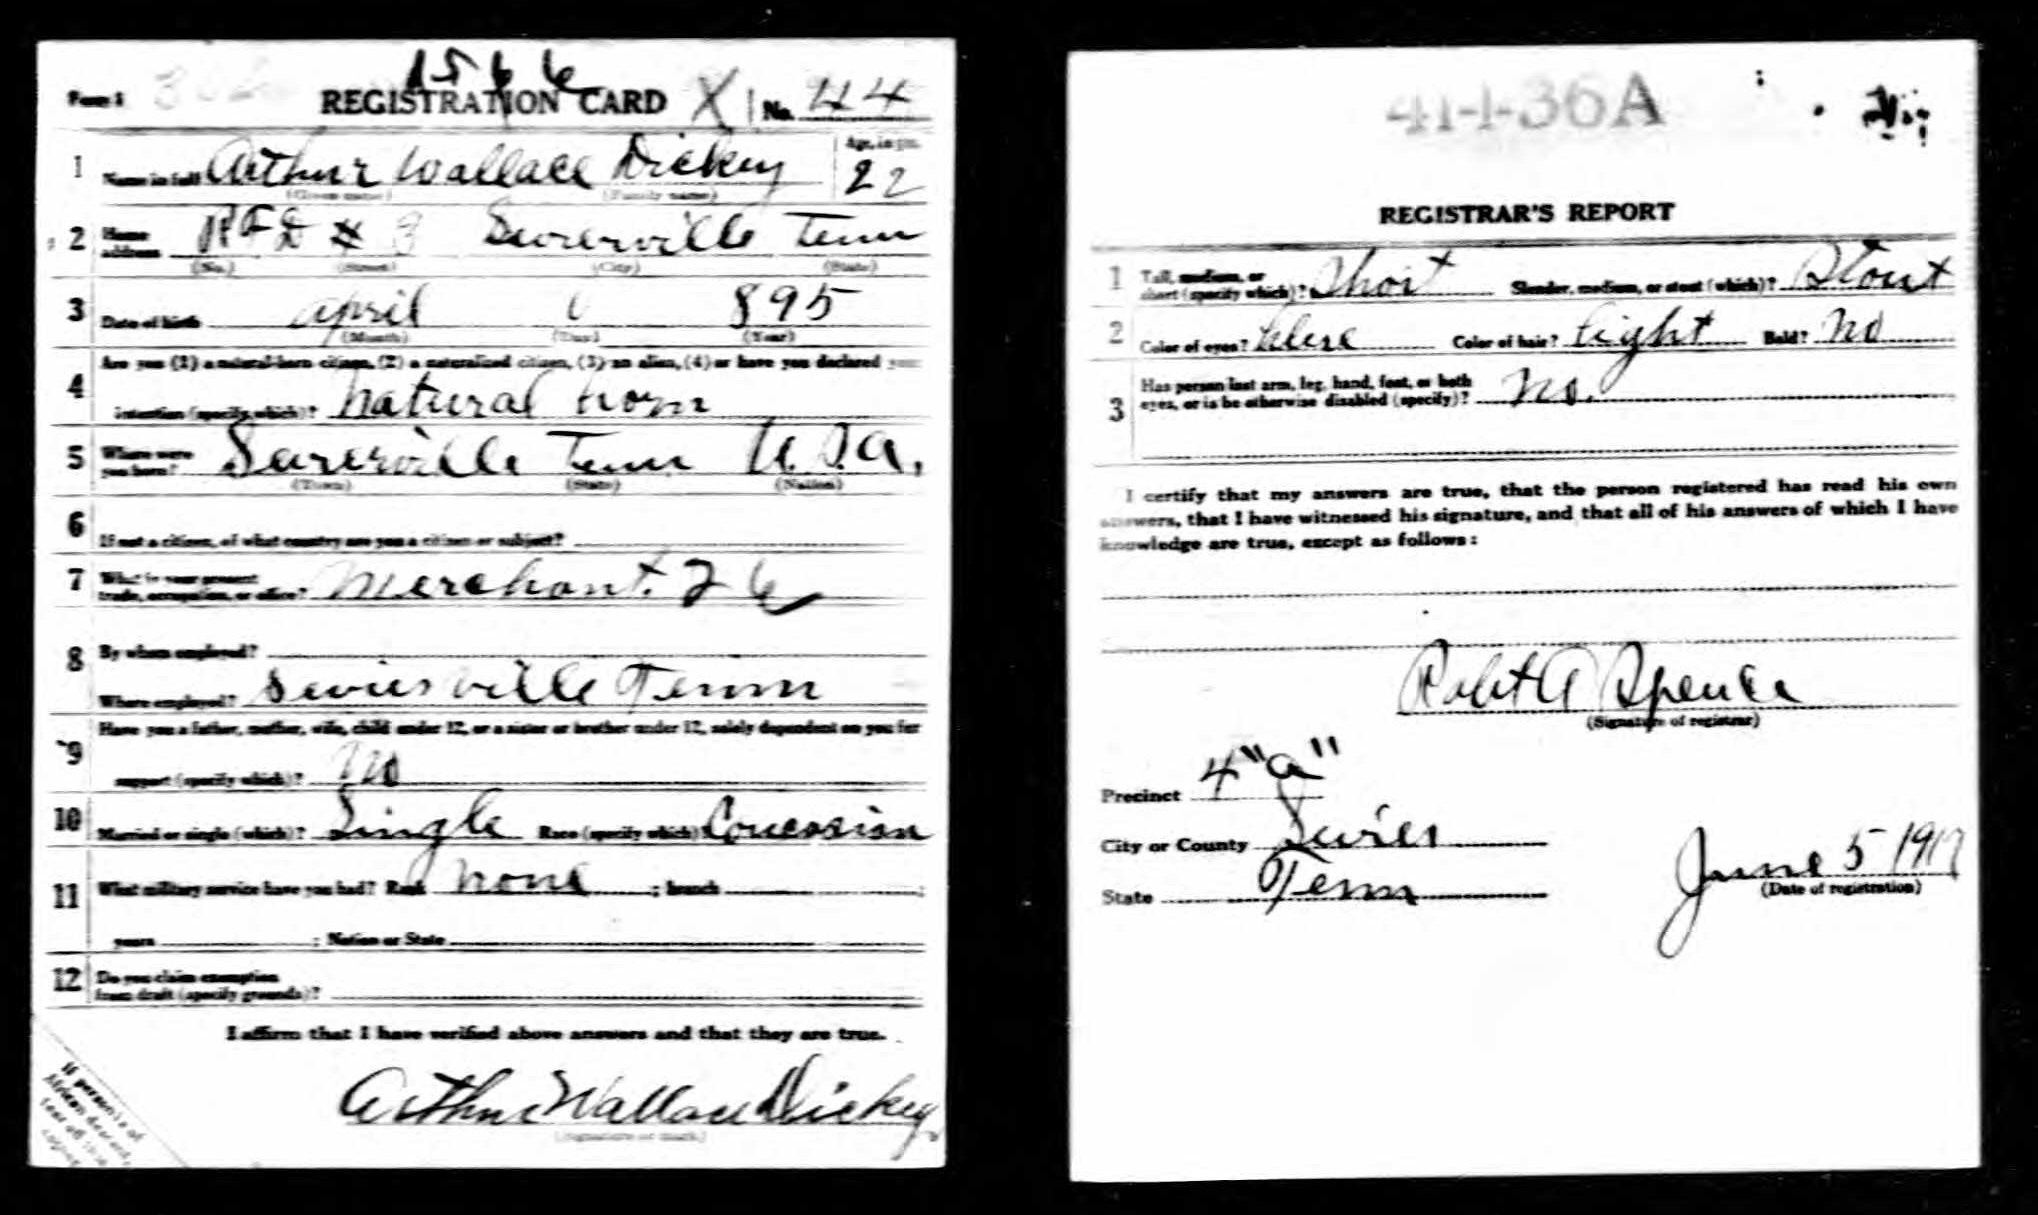 1566
Form 1 REGISTRATION CARD X No. 44
1 Name in full Arthur Wallace Dickey Age, in yrs. 22
(Given name) (Family name)
2 Home address RFD # 3 Sevierville Tenn
(No.) (Street) (City) (State)
3 Date of birth April 895
(Month) (Day) (Year)
Are you (1) a natural-born citizen, (2) a naturalized citizen, (3) an alien, (4) or have you declared your
4 intention (specify which)? Natural born
5 Where were you born? Sevierville Tenn U.S.A.
(Town) (State) (Nation)
6 If not a citizen, of what country are you a citizen or subject?
7 What is your present trade, occupation, or office? Merchant. 26
8 By whom employed?
Where employed? Sevierville Tenn
9 Have you a father, mother, wife, child under 12, or a sister or brother under 12, solely dependent on you for
support (specify which)? No
10 Married or single (which)? Single Race (specify which)? Concassian
11 What military service have you had? Rank None ; branch ;
years ; Nation or State
12 Do you claim exemption
from draft (specify grounds)?
I affirm that I have verified above answers and that they are true.
Arthur Wallace Dickey
(Signature or mark)
If person is of
African descent,
tear off this
corner
41-4-36A
REGISTRAR'S REPORT
1 Tall, medium, or short (specify which)? Short Slender, medium, or stout (which)? Stout
2 Color of eyes? Blue Color of hair? Light Bald? No
3 Has person lost arm, leg, hand, foot, or both
eyes, or is he otherwise disabled (specify)? No.
I certify that my answers are true, that the person registered has read his own
answers, that I have witnessed his signature, and that all of his answers of which I have
knowledge are true, except as follows:
Robt A Spence
(Signature of registrar)
Precinct 4 "a"
City or County Sevier
State Tenn
June 5 1917
(Date of registration)